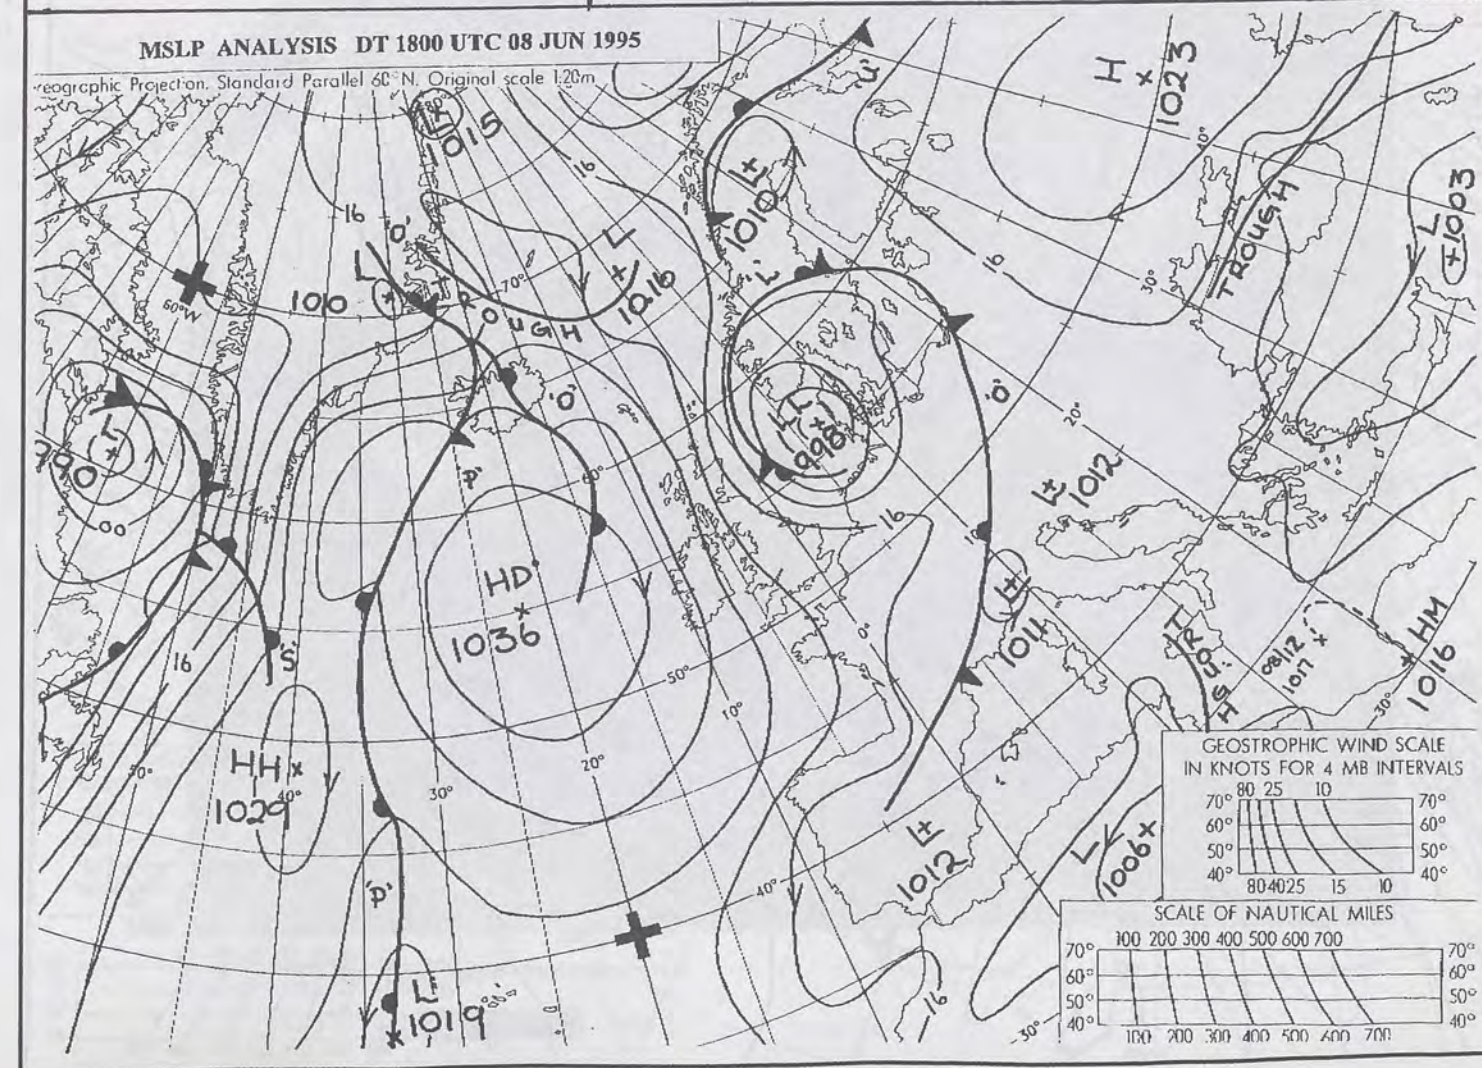 MSLP ANALYSIS DT 1800 UTC 08 JUN 1995
reographic Projection. Standard Parallel 60°N. Original scale 1:20m
H
1023
1015
16
16
L
1010
'U'
L
1003
TROUGH
30°
40°
16
'O'
L
1010
TROUGH
70°
L
1016
'L'
60°W
L
990
00
'O'
'P'
60°
L
998
'O'
20°
L
1012
16
10°
HD'
1036
L
1011
0°
TROUGH
08/12
1017
HM
1016
30°
16
'S'
50°
10°
HH
1029
50°
40°
30°
20°
'P'
40°
L
1012
L
1006
16
30°
L'
1019
GEOSTROPHIC WIND SCALE
IN KNOTS FOR 4 MB INTERVALS
80 25 10
70° 70°
60° 60°
50° 50°
40° 40°
80 40 25 15 10
SCALE OF NAUTICAL MILES
100 200 300 400 500 600 700
70° 70°
60° 60°
50° 50°
40° 40°
100 200 300 400 500 600 700